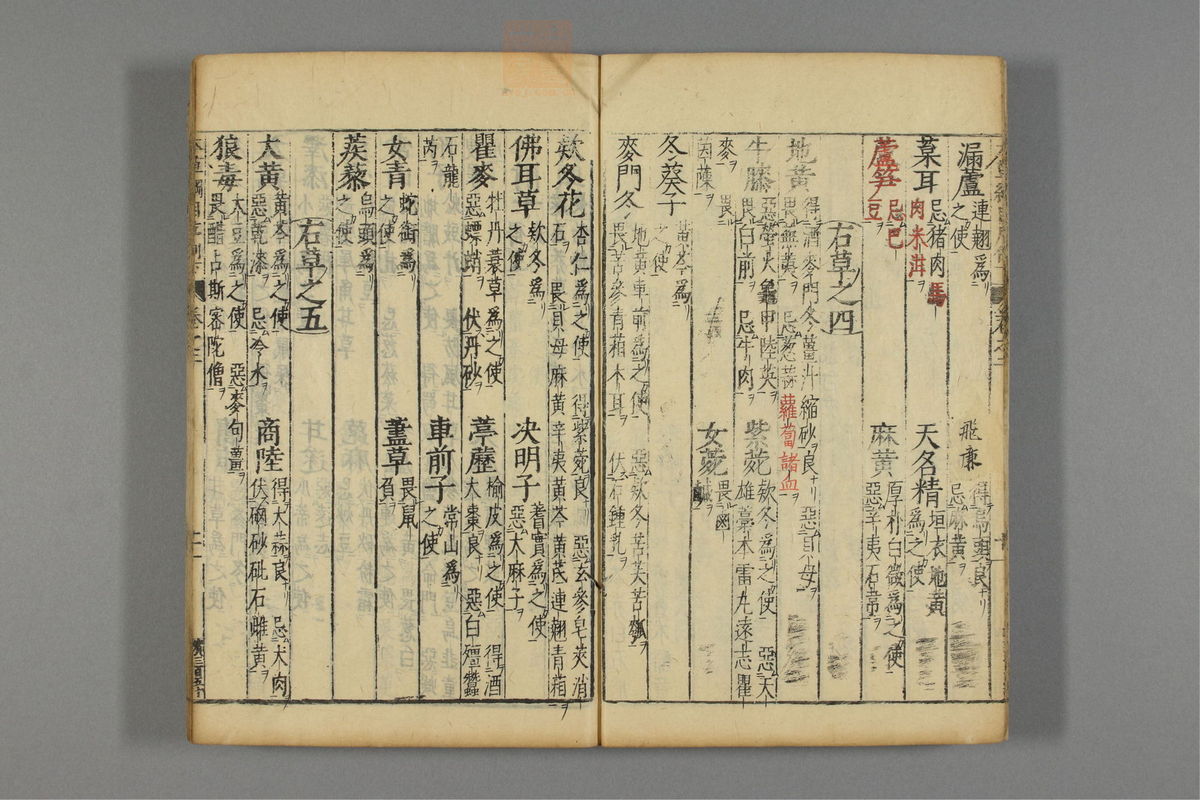 漏蘆 連翹爲之使 飛廉 得烏頭良 忌麻黃
葈耳 忌猪肉馬肉米泔 天名精 垣衣地黃爲之使
蘆笋 忌巴豆 麻黃 厚朴白微爲之使 惡辛夷石韋
右草之四
地黃 得酒麥門冬薑汁縮砂良 惡貝母 畏蕪荑 忌葱蒜蘿蔔諸血
牛膝 惡螢火龜甲陸英 畏白前 忌牛肉 紫菀 款冬爲之使 惡天雄藁本雷丸遠志瞿
麥 畏茵蔯 女菀 畏鹵鹹
冬葵子 黃芩爲之使
麥門冬 地黃車前爲之使 惡款冬苦芙苦瓠 畏苦參青葙木耳 伏石鍾乳
欵冬花 杏仁爲之使 得紫菀良 惡玄參皂莢消石 畏貝母麻黃辛夷黃芩黃芪連翹青葙
佛耳草 欵冬爲之使 决明子 蓍實爲之使 惡大麻子
瞿麥 牡丹蓑草爲之使 惡螵蛸 伏丹砂 葶藶 榆皮爲之使 得酒大棗良 惡白殭蠶
石龍芮 車前子 常山爲之使
女青 蛇銜爲之使 藎草 畏鼠負
蒺藜 烏頭爲之使
右草之五
大黃 黃芩爲之使 惡乾漆 忌冷水 商陸 得大蒜良 忌犬肉 伏硇砂砒石雌黃
狼毒 大豆爲之使 惡麥句薑 畏醋占斯密陀僧